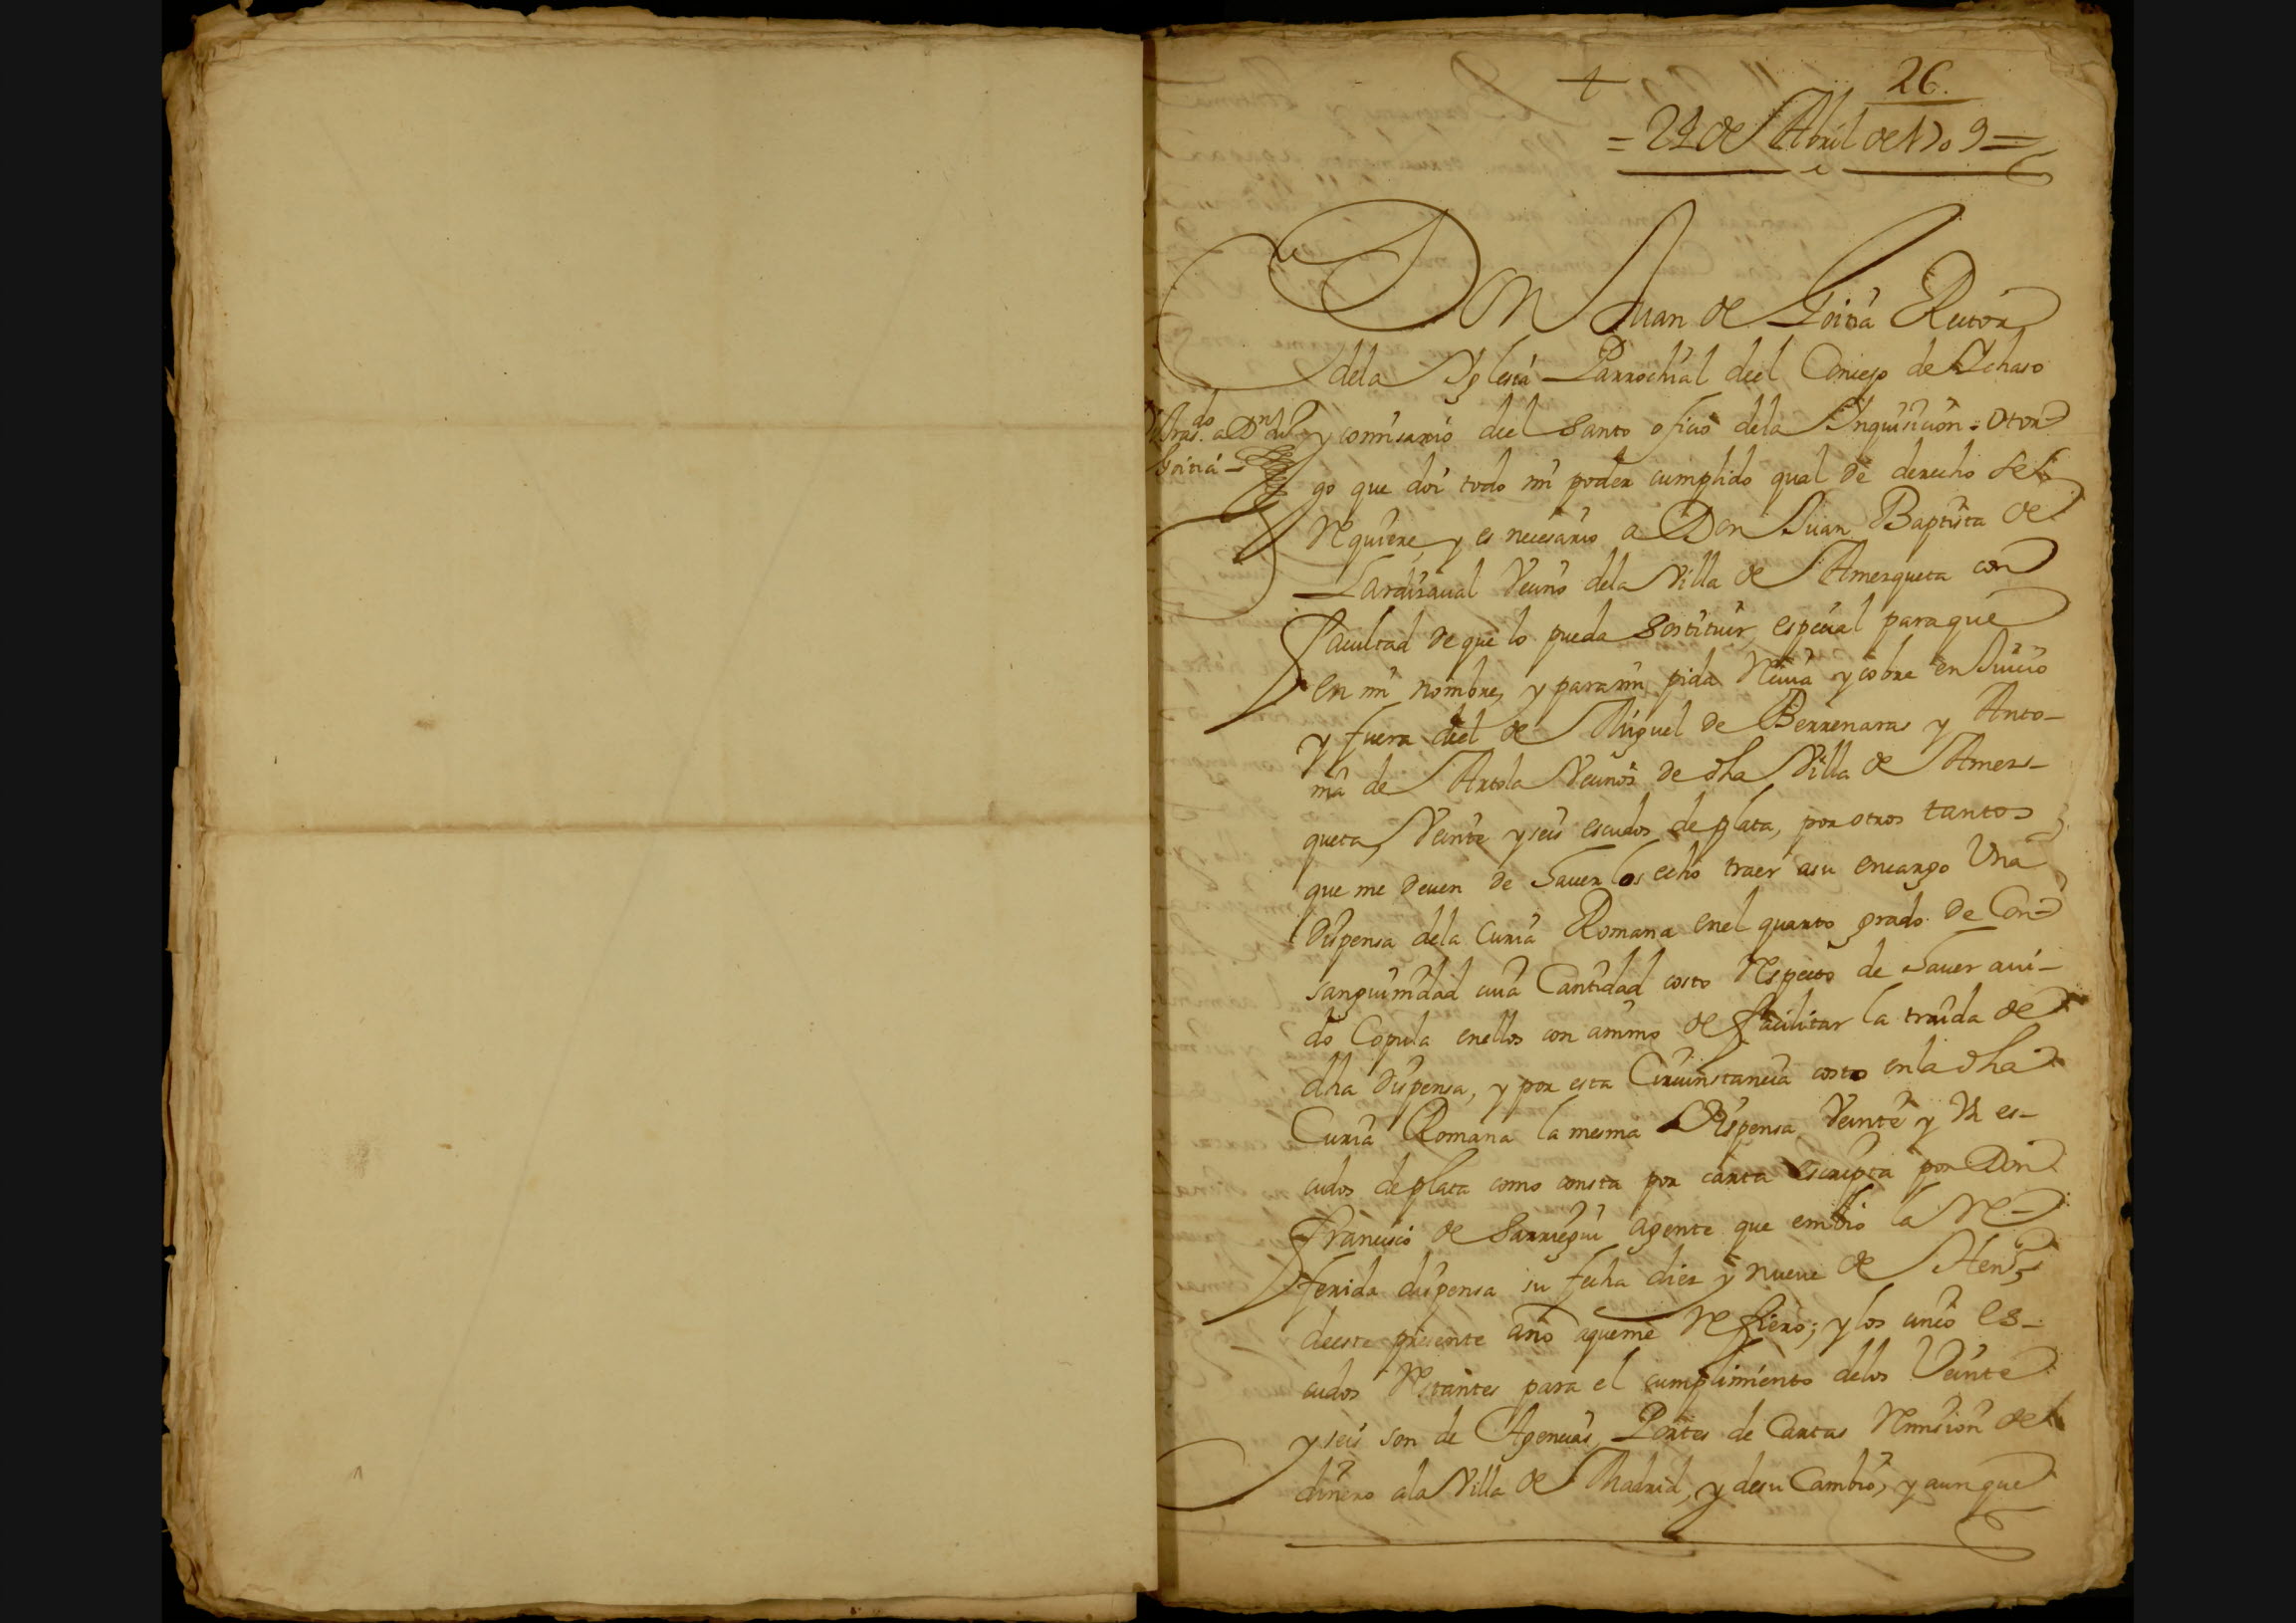 +
26.
= 29 de Abril de 1709 =
Don Juan de Goitia Rector
dela Yglesia Parrochial del Concejo de Achaso
y comisario del Santo oficio dela Inquisicion = otor
go que doi todo mi poder cumplido qual de derecho se
Requiere, y es necesario a Don Juan Baptista de
Lardizaual Vecino dela Villa de Amezqueta con
facultad de que lo pueda sostituir, especial para que
en mi nombre, y para mi pida Reciua y cobre en Juicio
y fuera del de Miguel de Berrenaras y Anto-
nia de Artola Vecinos de dha Villa de Amez-
queta, Veinte y seis escudos de plata, por otros tantos
que me deuen de hauer los echo traer a su encargo Una
dispensa dela Curia Romana en el quarto grado de Con-
sanguinidad cuia Cantidad costo Respecto de hauer aui-
do Copula enellos con animo de facilitar la traida de
dha dispensa, y por esta Circunstancia costo en la dha
Curia Romana la mesma Dispensa Veinte y Un es-
cudos de plata como consta por carta escripta por Don
Francisco de Sarriegui agente que embio la Re-
ferida dispensa su fecha diez y nueue de Hen.º
deeste presente año aqueme Refiero; y los cinco es-
cudos Restantes para el cumplimiento delos Veinte
y seis son de Agencias, Portes de Cartas Remision del
dinero ala Villa de Madrid, y desu Cambio, y aunque